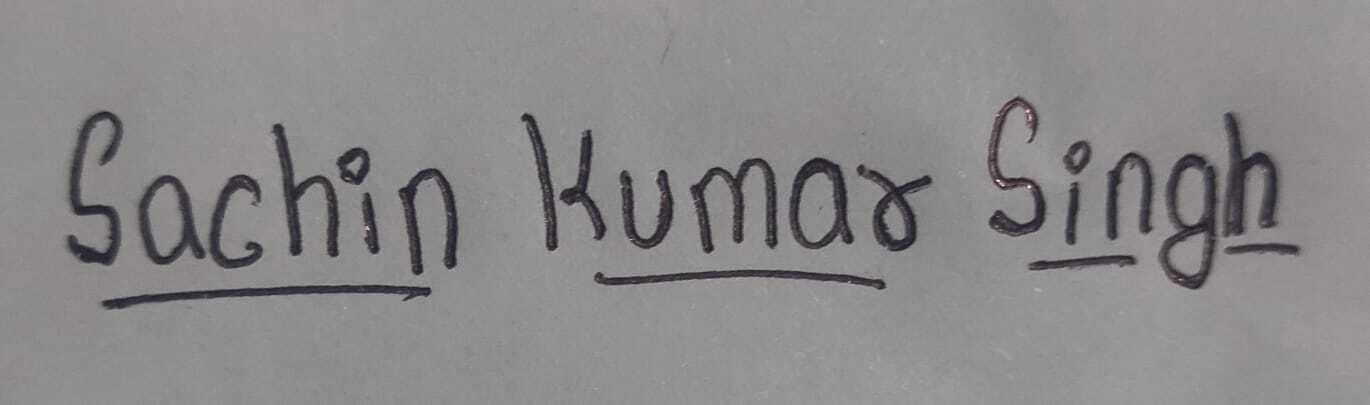 Sachin Kumar Singh